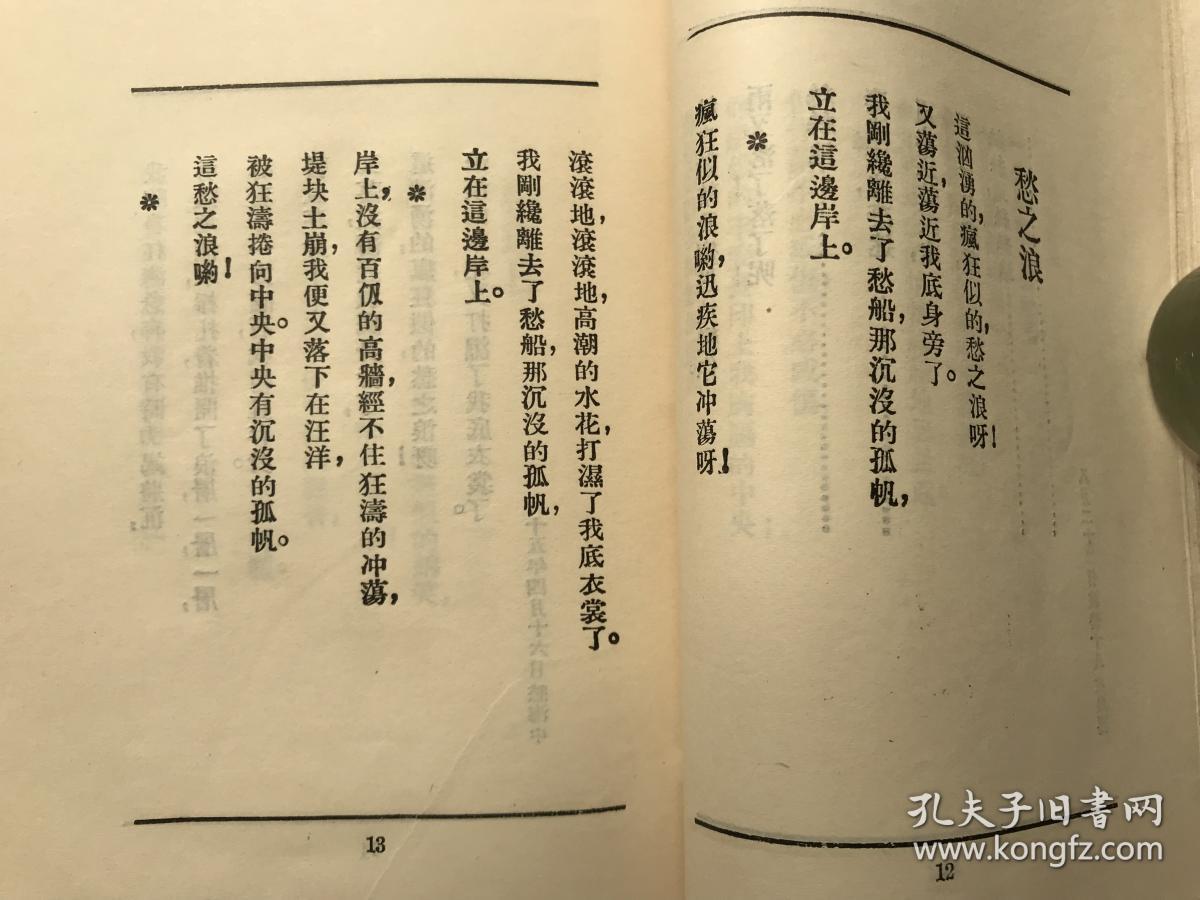 愁之浪
這汹湧的，瘋狂似的，愁之浪呀！
又蕩近，蕩近我底身旁了。
我剛纔離去了愁船，那沉沒的孤帆，
立在這邊岸上。
＊
瘋狂似的浪喲，迅疾地它冲蕩呀！
12
滾滾地，滾滾地，高潮的水花，打濕了我底衣裳了。
我剛纔離去了愁船，那沉沒的孤帆，
立在這邊岸上。
＊
岸上，沒有百仭的高牆，經不住狂濤的冲蕩，
堤块土崩，我便又落下在汪洋，
被狂濤捲向中央。中央有沉沒的孤帆。
這愁之浪喲！
＊
13
孔夫子旧书网
www.kongfz.com